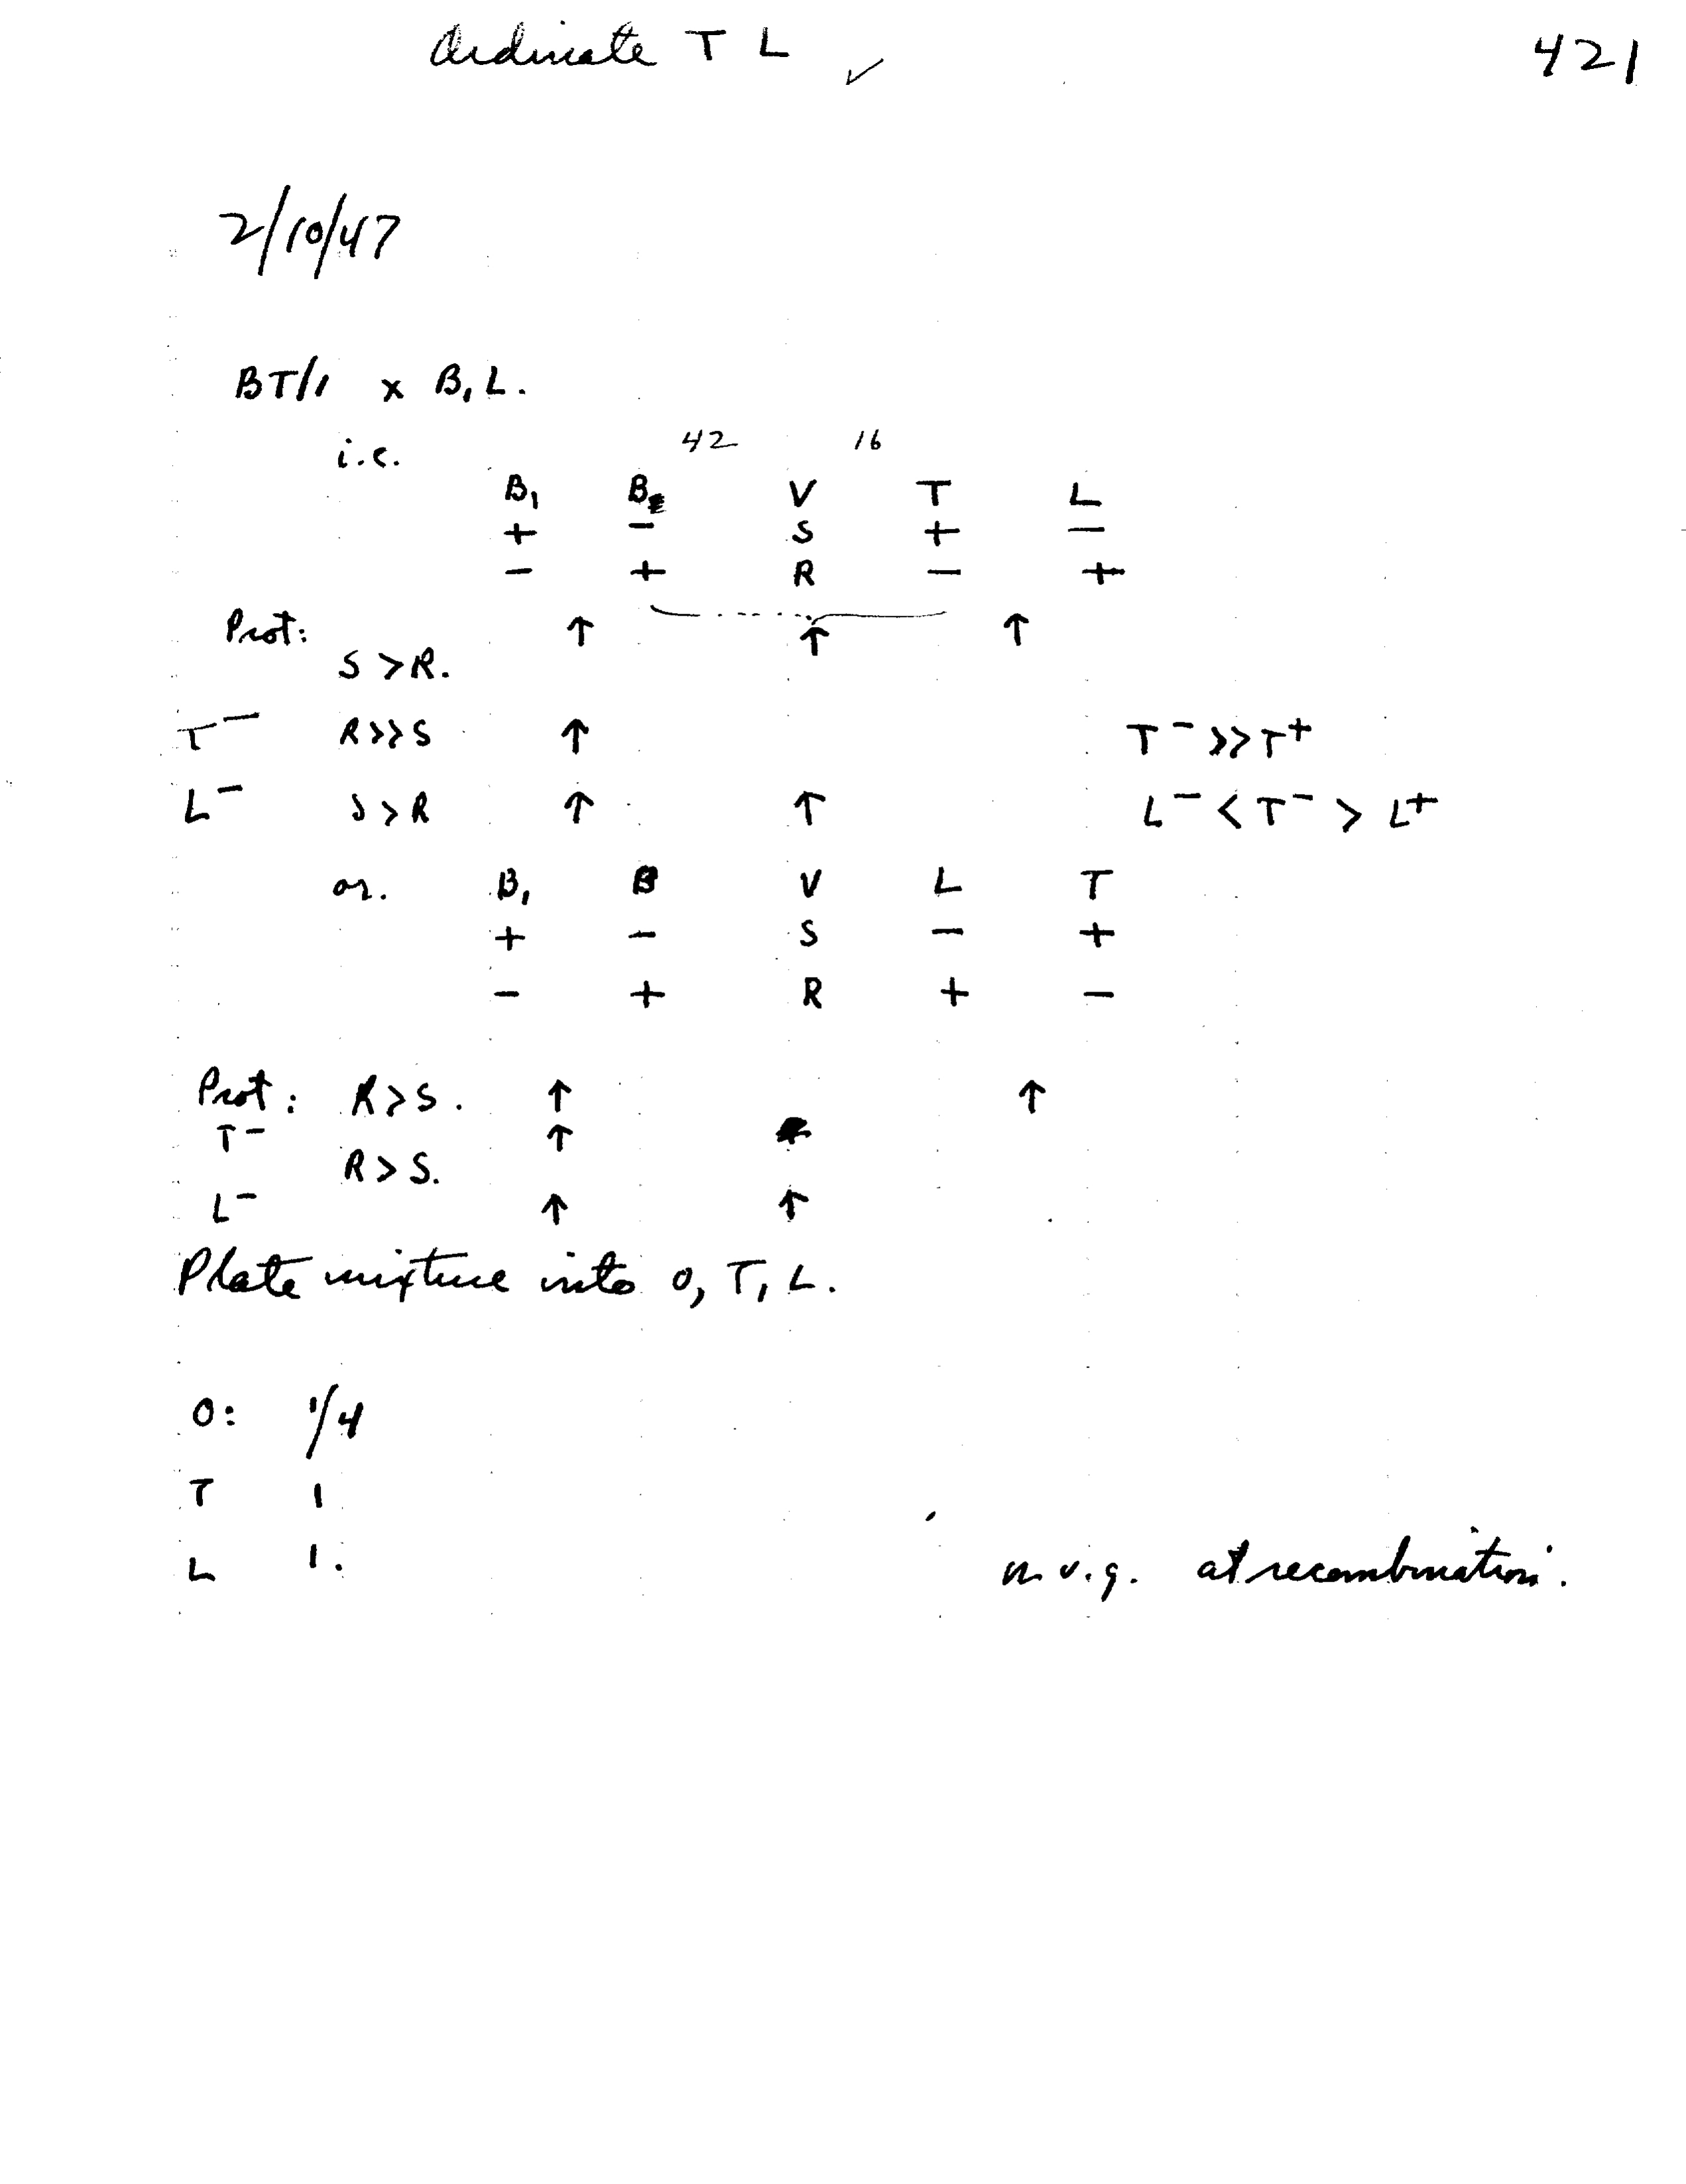 Ordinate T L ✓ 421
2/10/47
BT/1 x B₁L.
i.e. 42 16
B₁ B V T L
+ - S + -
- + R - +
Prot: ↑ ↑ ↑
S > R.
T⁻ R >>> S ↑ T⁻ >>> T⁺
L⁻ S > R ↑ ↑ L⁻ < T⁻ > L⁺
or. B₁ B V L T
+ - S - +
- + R + -
Prot: R > S. ↑ ↑
T⁻ ↑
R > S.
L⁻ ↑ ↑
Plate mixture into O, T, L.
O: 1/4
T 1
L 1.
v.g. at recombination.